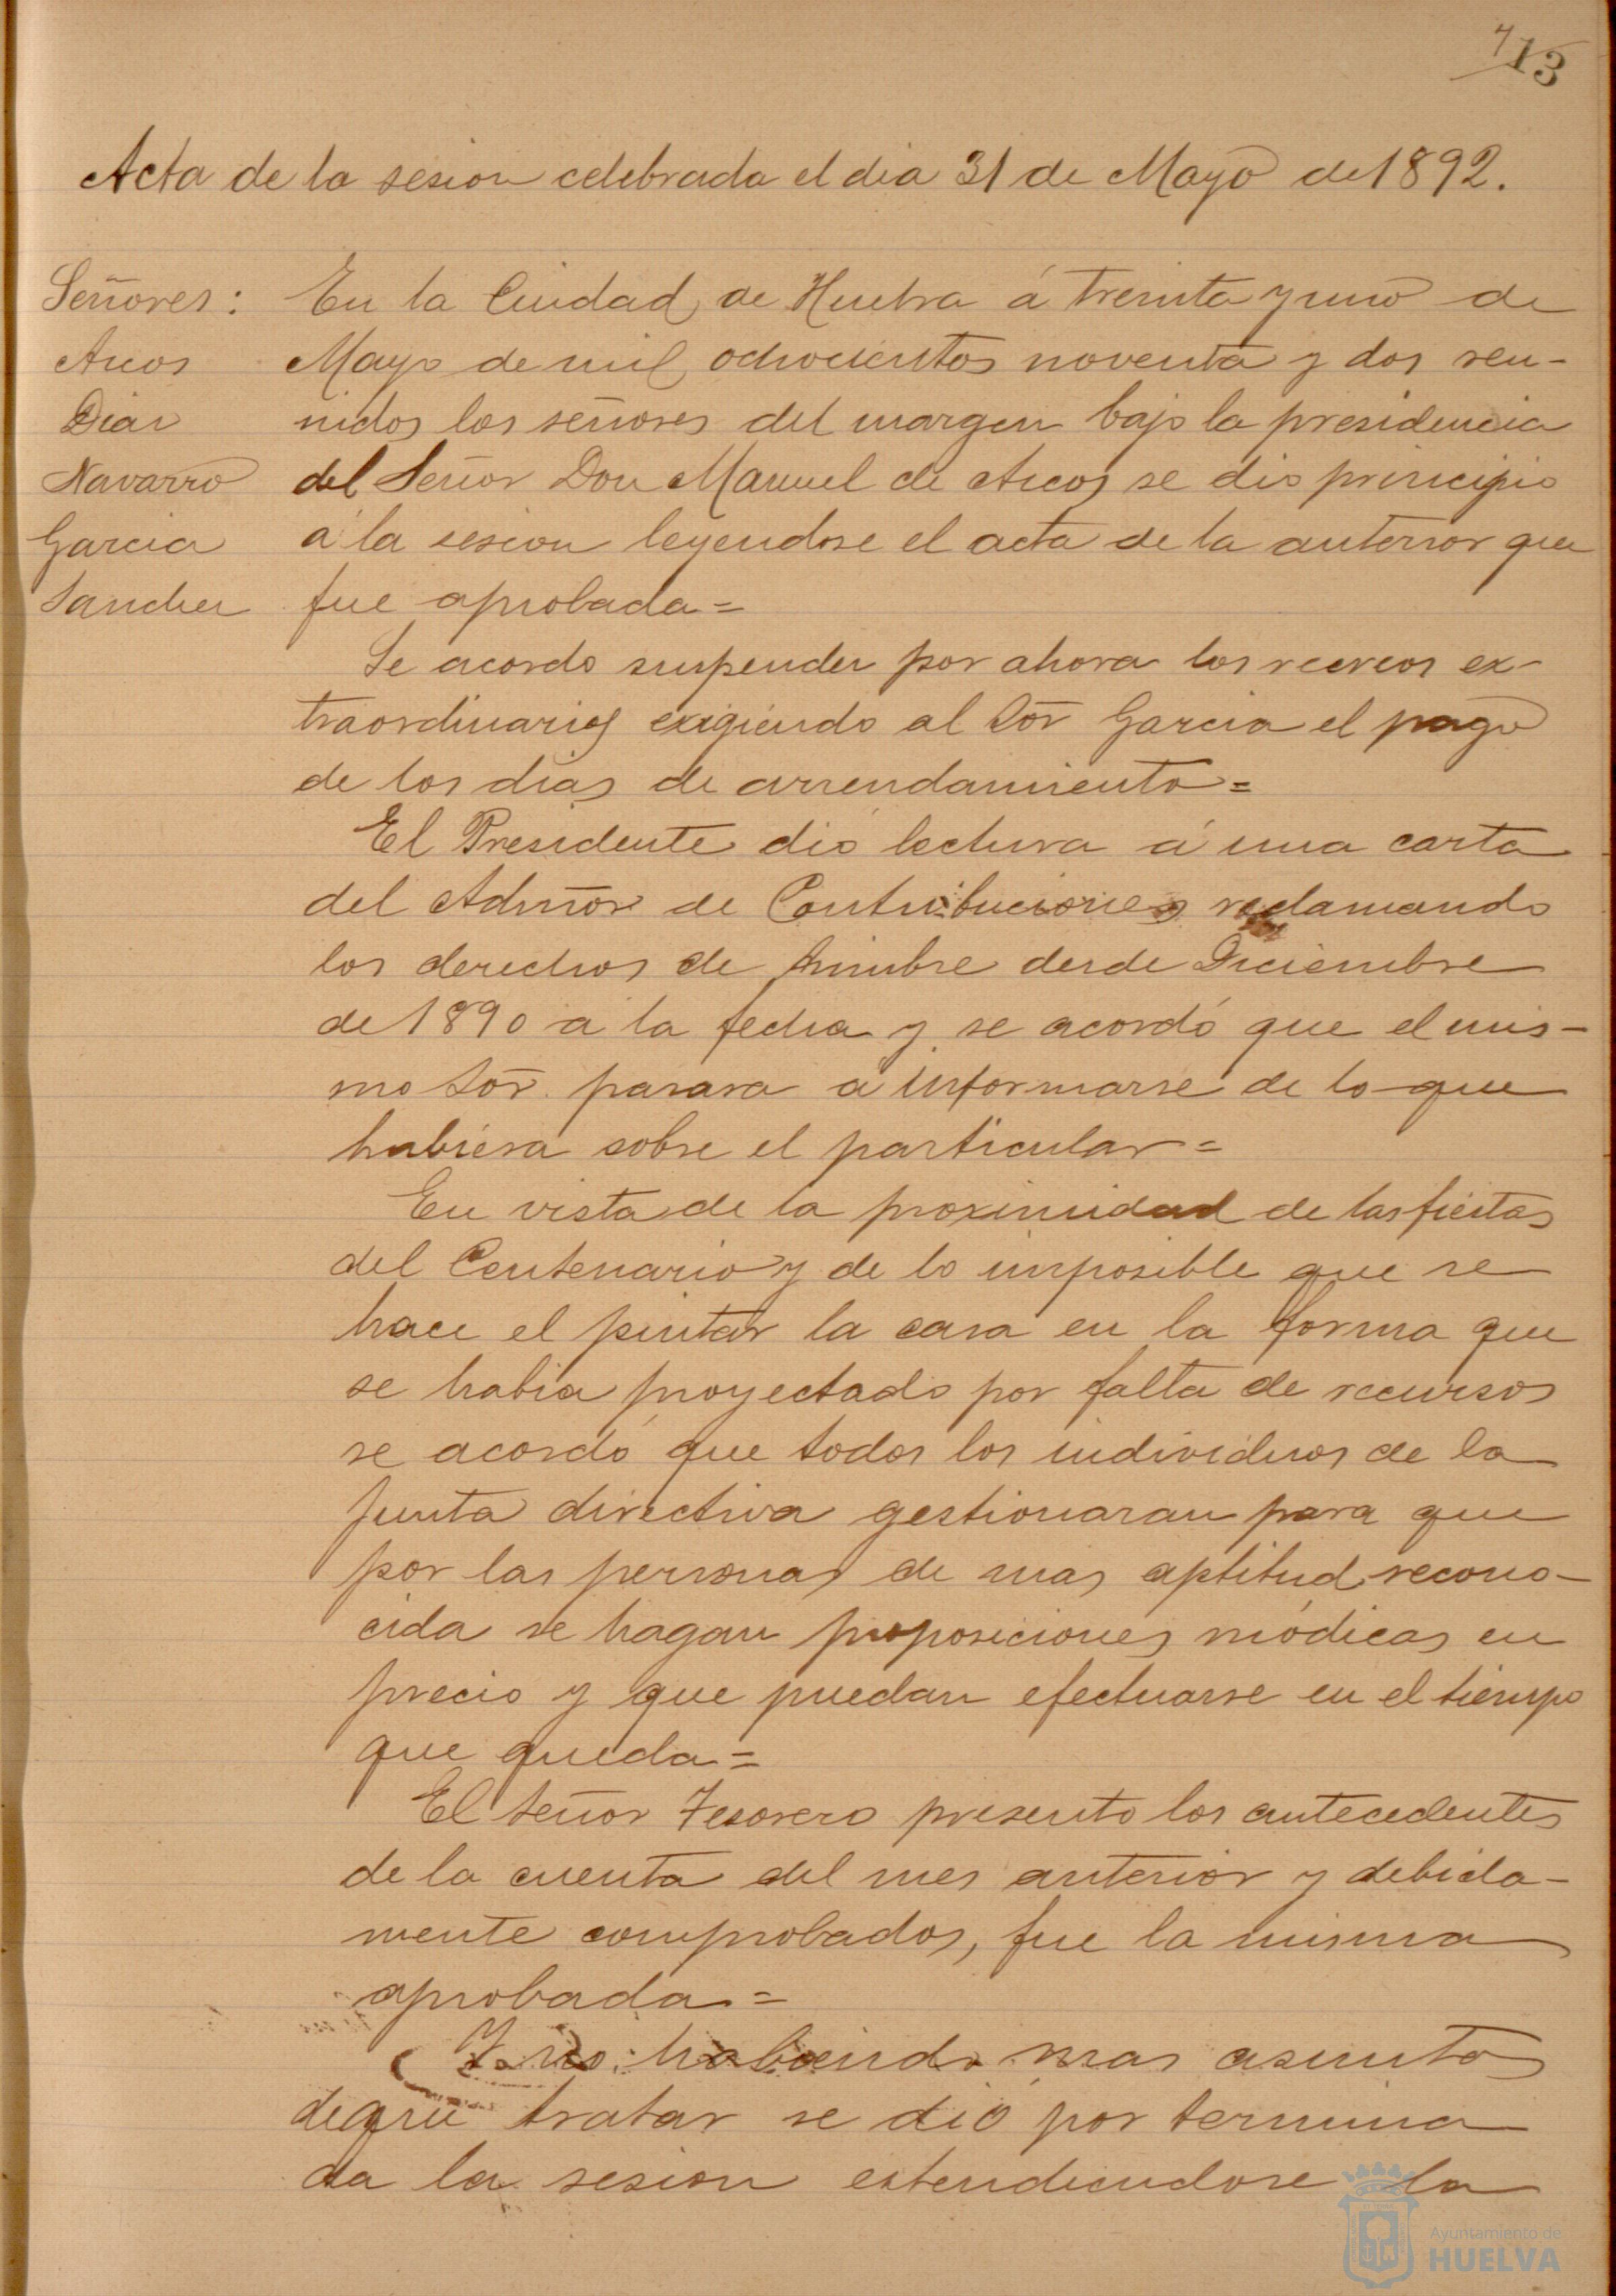 7 13
Acta de la sesion celebrada el dia 31 de Mayo de 1892.
Señores:
Arcos
Diaz
Navarro
Garcia
Sanchez
En la Ciudad de Huelva á treinta y uno de
Mayo de mil ochocientos noventa y dos reu-
nidos los señores del margen bajo la presidencia
del Señor Don Manuel de Arcos se dio principio
á la sesion leyendose el acta de la anterior que
fue aprobada=
Se acordo suspender por ahora los recreos ex-
traordinarios exigiendo al Sōr Garcia el pago
de los dias de arrendamiento=
El Presidente dió lectura á una carta
del Admōr de Contribuciones reclamando
los derechos de timbre desde Diciembre
de 1890 a la fecha y se acordó que el mis-
mo Sōr. pasara a informarse de lo que
hubiera sobre el particular=
En vista de la proximidad de las fiestas
del Centenario y de lo imposible que se
hace el pintar la casa en la forma que
se habia proyectado por falta de recursos
se acordó que todos los individuos de la
Junta directiva gestionaran para que
por las personas de mas aptitud recono-
cida se hagan proposiciones módicas en
precio y que puedan efectuarse en el tiempo
que queda=
El Señor Tesorero presento los antecedentes
de la cuenta del mes anterior y debida-
mente comprobados, fue la misma
aprobada=
Y no habiendo mas asuntos
de que tratar se dió por termina
da la sesion estendiendose la
Ayuntamiento de
HUELVA